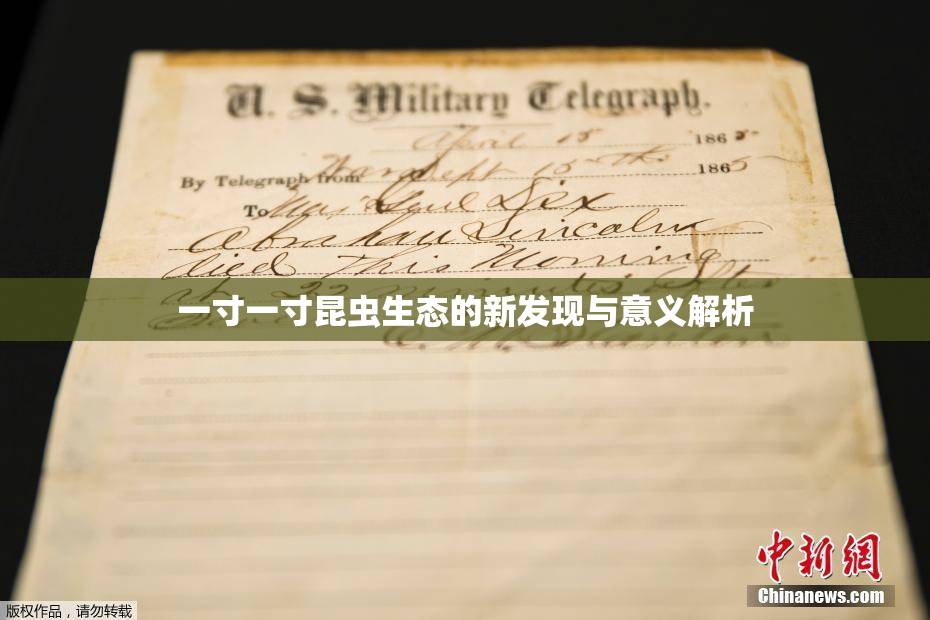 U. S. Military Telegraph.
April 15 1865
By Telegraph from War Dept 15th 1865
To Maj Genl Dix
Abraham Lincoln
died This Morning
at 22 minutes after
一寸一寸昆虫生态的新发现与意义解析
中新網
Chinanews.com
版权作品，请勿转载